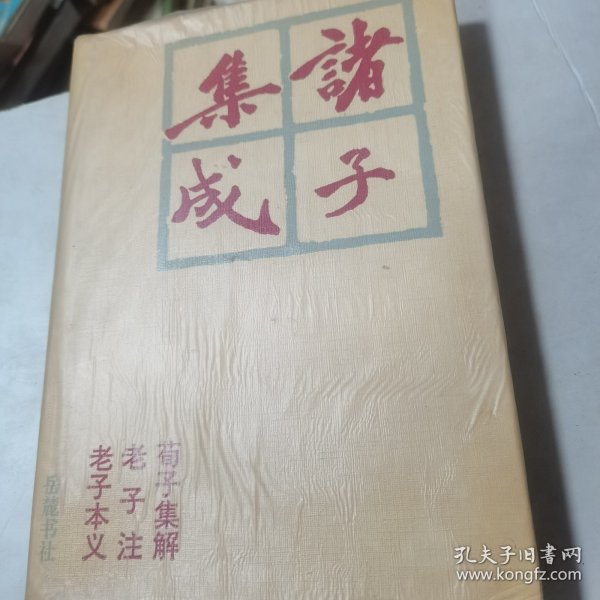 諸子
集成
荀子集解
老子注
老子本义
岳麓书社
孔夫子旧书网
www.kongfz.com